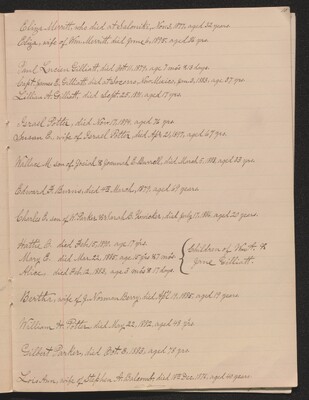 Eliza Merritt, who died at Salonika, Nov 3, 1877, aged 52 years
Eliza, wife of Wm Merritt, died June 1890, aged 86 yrs.
Paul Lucien Gilliatt, died Oct 11, 1879, age 7 mos & 18 days.
Capt. James E. Gilliatt, died at Socorro, New Mexico, June 3, 1883, age 37 yrs.
Lillian H. Gilliatt, died Sept. 25, 1881, aged 17 yrs.
Israel Potter, died Nov. 17, 1894, aged 76 yrs.
Susan E., wife of Israel Potter, died Apr. 21, 1887, aged 67 yrs.
Wallace M. son of Josiah & Jemimah E. Burrell, died March 1, 1882, aged 23 yrs.
Edward F. Burns, died 4th March, 1879, aged 69 years
Charles E. son of W. Parker & Sarah B. Whitaker, died July 17, 1886, aged 20 years.
Hattie C. died Feb. 15, 1880, age 17 yrs.
Mary E. died Mar. 22, 1885, age 15 yrs & 7 mos
Alice died Feb. 12, 1883, age 8 mos & 17 days.
Children of Wm. A. &
Jane Gilliatt.
Bertha, wife of J. Norman Berry, died Apl. 17, 1885, aged 19 years
William H. Potter, died May 22, 1882, aged 48 yrs
Gilbert Parker, died Oct. 8, 1883, aged 78 yrs
Lois Ann, wife of Stephen A. died 18 Dec. 1876, aged 40 years